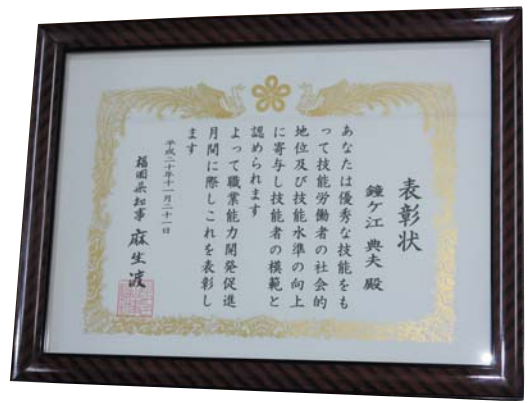 表彰状
鐘ケ江 典夫 殿
あなたは優秀な技能をも
って技能労働者の社会的
地位及び技能水準の向上
に寄与し技能者の模範と
認められます
よって職業能力開発促進
月間に際しこれを表彰し
ます
平成二十年十一月二十一日
福岡県知事 麻生渡